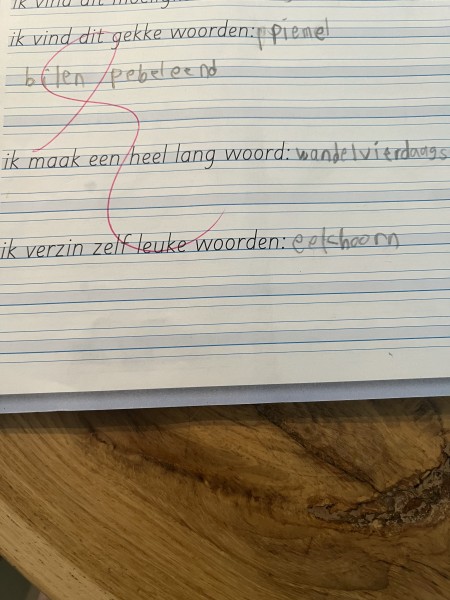 ik vind dit
ik vind dit gekke woorden: piemel
bilen pebeleend
ik maak een heel lang woord: wandelvierdaags
ik verzin zelf leuke woorden: eekhoorn